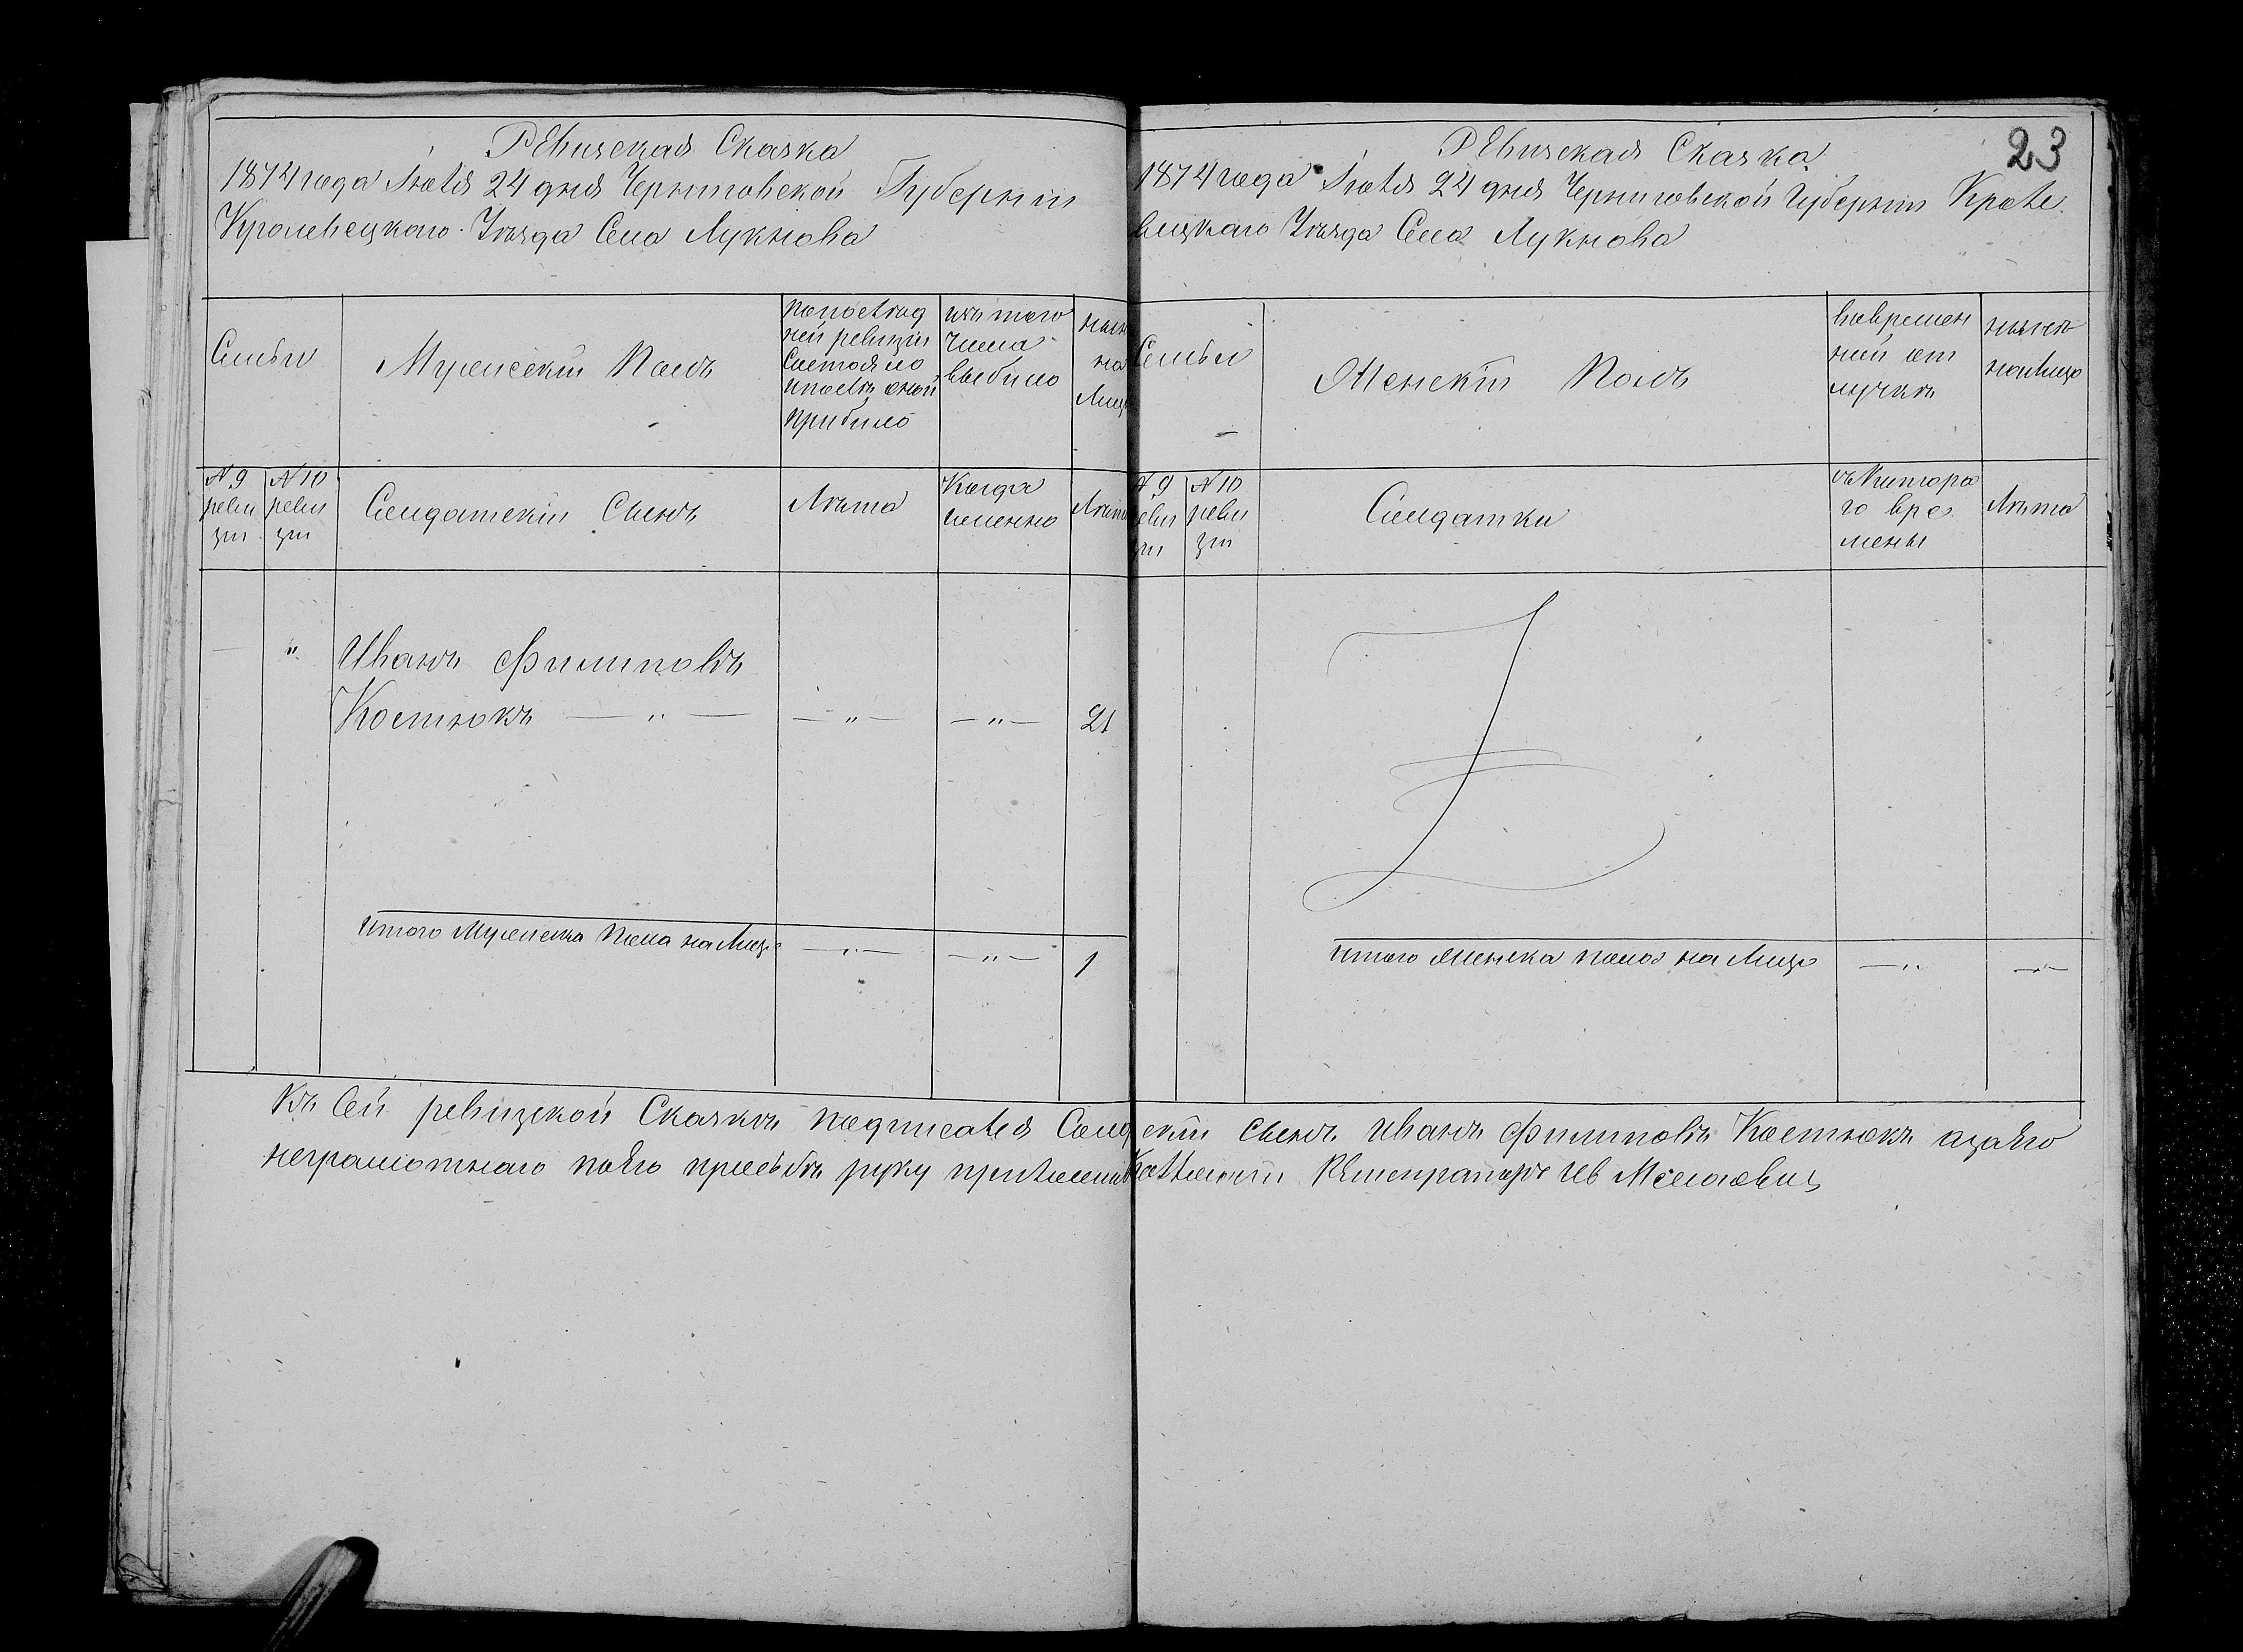 Ревизская Сказка
1874 года Іюля 24 дня Черниговской Губерніи
Кролевецкаго Уѣзда Села Лукнова
Семьи
Мужескій Полъ
по послѣд
ней ревизіи
состояло
и послѣ оной
прибило
изъ того
числа
выбило
нын
на
Лиц
№ 9
реви
зіи
№ 10
реви
зіи
Солдатскій Сынъ
Лѣта
Когда
именно
Лѣта
— " Иванъ Филиповъ
Костюкъ — " — — " — — " — 21
Итого Мужеска Пола на Лице — " — — " — 1
Ревизская Сказка
23
1874 года Іюля 24 дня Черниговской Губерніи Кроле
вецкаго Уѣзда Села Лукнова
Семьи
Женскій Полъ
вовремен
ней от
лучкѣ
нынѣ
на лицо
№ 9
реви
зіи
№ 10
реви
зіи
Солдатки
съ Китора
го вре
мены
Лѣта
Итого Женска пола на Лице — " — " —
Къ Сей ревизской Сказкѣ подписался Солд скій сынъ Иванъ Филиповъ Костюкъ а за его
неграмотнаго по его прозьбѣ руку приложилъ